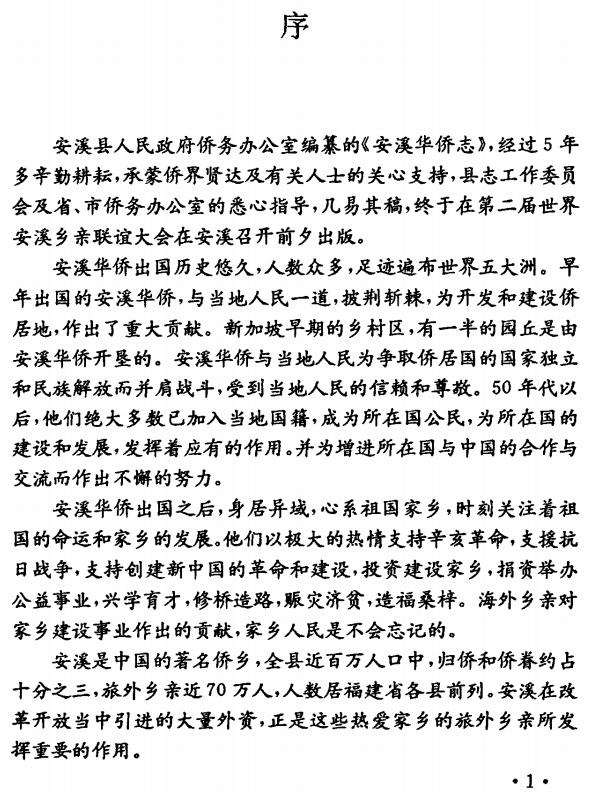 序
安溪县人民政府侨务办公室编纂的《安溪华侨志》,经过5年
多辛勤耕耘,承蒙侨界贤达及有关人士的关心支持,县志工作委员
会及省、市侨务办公室的悉心指导,几易其稿,终于在第二届世界
安溪乡亲联谊大会在安溪召开前夕出版。
安溪华侨出国历史悠久,人数众多,足迹遍布世界五大洲。早
年出国的安溪华侨,与当地人民一道,披荆斩棘,为开发和建设侨
居地,作出了重大贡献。新加坡早期的乡村区,有一半的园丘是由
安溪华侨开垦的。安溪华侨与当地人民为争取侨居国的国家独立
和民族解放而并肩战斗,受到当地人民的信赖和尊敬。50年代以
后,他们绝大多数已加入当地国籍,成为所在国公民,为所在国的
建设和发展,发挥着应有的作用。并为增进所在国与中国的合作与
交流而作出不懈的努力。
安溪华侨出国之后,身居异域,心系祖国家乡,时刻关注着祖
国的命运和家乡的发展。他们以极大的热情支持辛亥革命,支援抗
日战争,支持创建新中国的革命和建设,投资建设家乡,捐资举办
公益事业,兴学育才,修桥造路,赈灾济贫,造福桑梓。海外乡亲对
家乡建设事业作出的贡献,家乡人民是不会忘记的。
安溪是中国的著名侨乡,全县近百万人口中,归侨和侨眷约占
十分之三,旅外乡亲近70万人,人数居福建省各县前列。安溪在改
革开放当中引进的大量外资,正是这些热爱家乡的旅外乡亲所发
挥重要的作用。
·1·